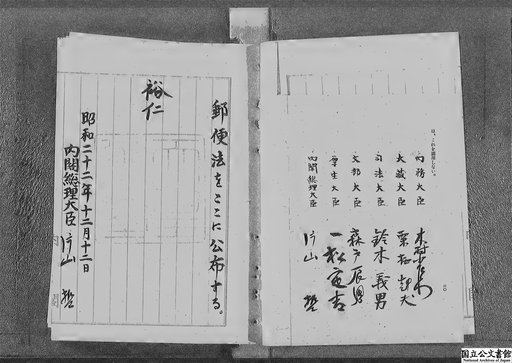 は、これを適用しない。
内務大臣 木村小左衛門
大蔵大臣 栗栖赳夫
司法大臣 鈴木義男
文部大臣 森戸辰男
厚生大臣 一松定吉
内閣総理大臣 片山哲
郵便法をここに公布する。
裕仁
昭和二十二年十二月十二日
内閣総理大臣 片山哲
国立公文書館
National Archives of Japan